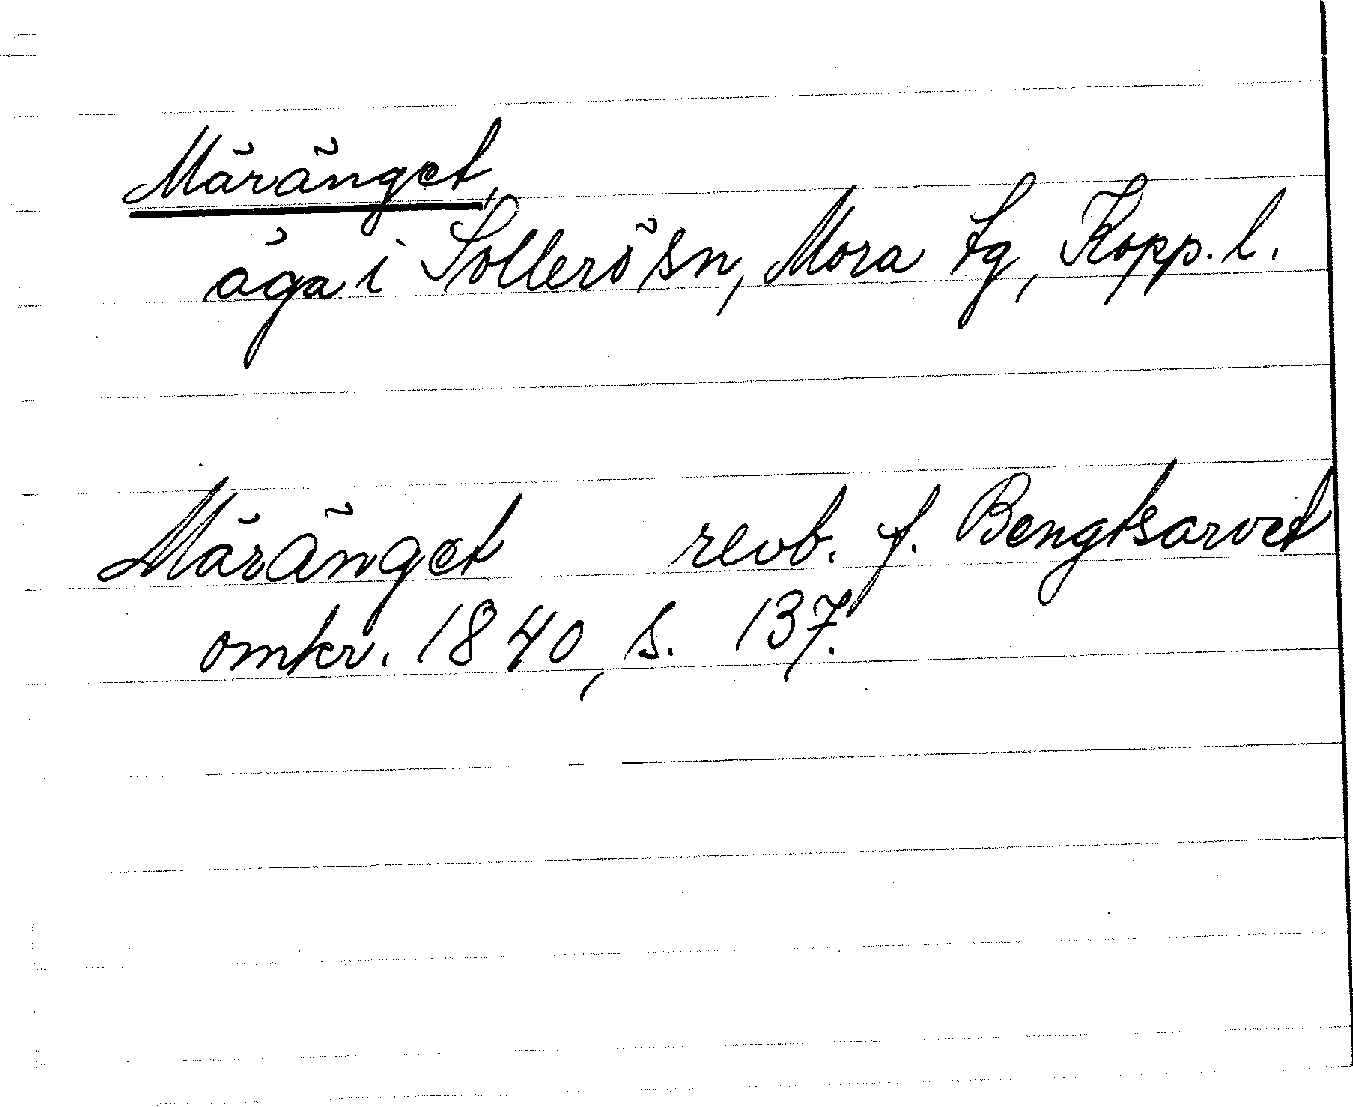 Märänget,
äga i Sollerö sn, Mora tg, Kopp. l.
Märänget revb. f. Bengtsarvet
omkr. 1840, s. 137.